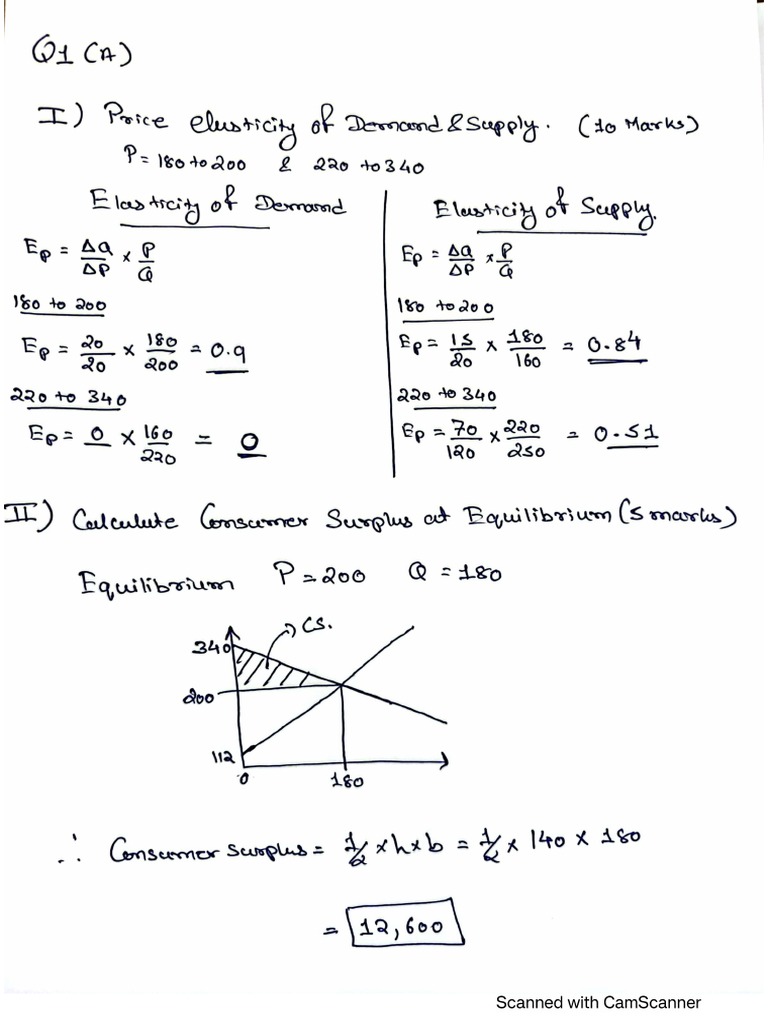 Q1 (A)
I) Price elusticity of Demand & Supply. (10 Marks)
P = 180 to 200 & 220 to 340
Elasticity of Demand
Ep = ΔQ/ΔP × P/Q
180 to 200
Ep = 20/20 × 180/200 = 0.9
220 to 340
Ep = 0 × 160/220 = 0
Elasticity of Supply.
Ep = ΔQ/ΔP × P/Q
180 to 200
Ep = 15/20 × 180/160 = 0.84
220 to 340
Ep = 70/120 × 220/250 = 0.51
II) Calculate Consumer Surplus at Equilibrium (5 marks)
Equilibrium P = 200 Q = 180
CS.
340
200
112
0
180
∴ Consumer surplus = 1/2 × h × b = 1/2 × 140 × 180
= 12,600
Scanned with CamScanner